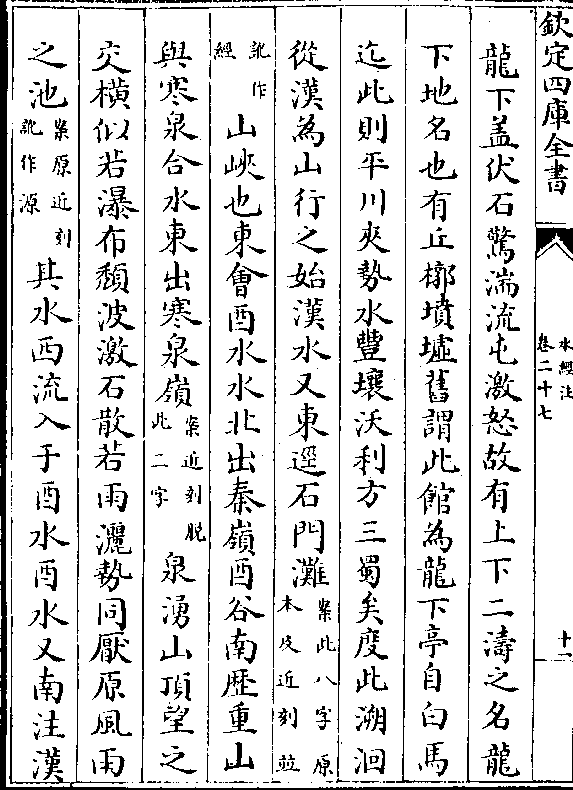 欽定四庫全書
水經注
卷二十七
十一
龍下蓋伏石驚湍流屯激怒故有上下二濤之名龍
下地名也有丘槨墳墟舊謂此館為龍下亭自白馬
迄此則平川夾勢水豐壤沃利方三蜀矣度此溯洄
從漢為山行之始漢水又東逕石門灘案此八字原本及近刻並
訛作經山峽也東會酉水水北出秦嶺酉谷南歷重山
與寒泉合水東出寒泉嶺案近刻脱此二字泉湧山頂望之
交橫似若瀑布頽波激石散若雨灑勢同厭原風雨
之池案原近刻訛作源其水西流入于酉水酉水又南注漢